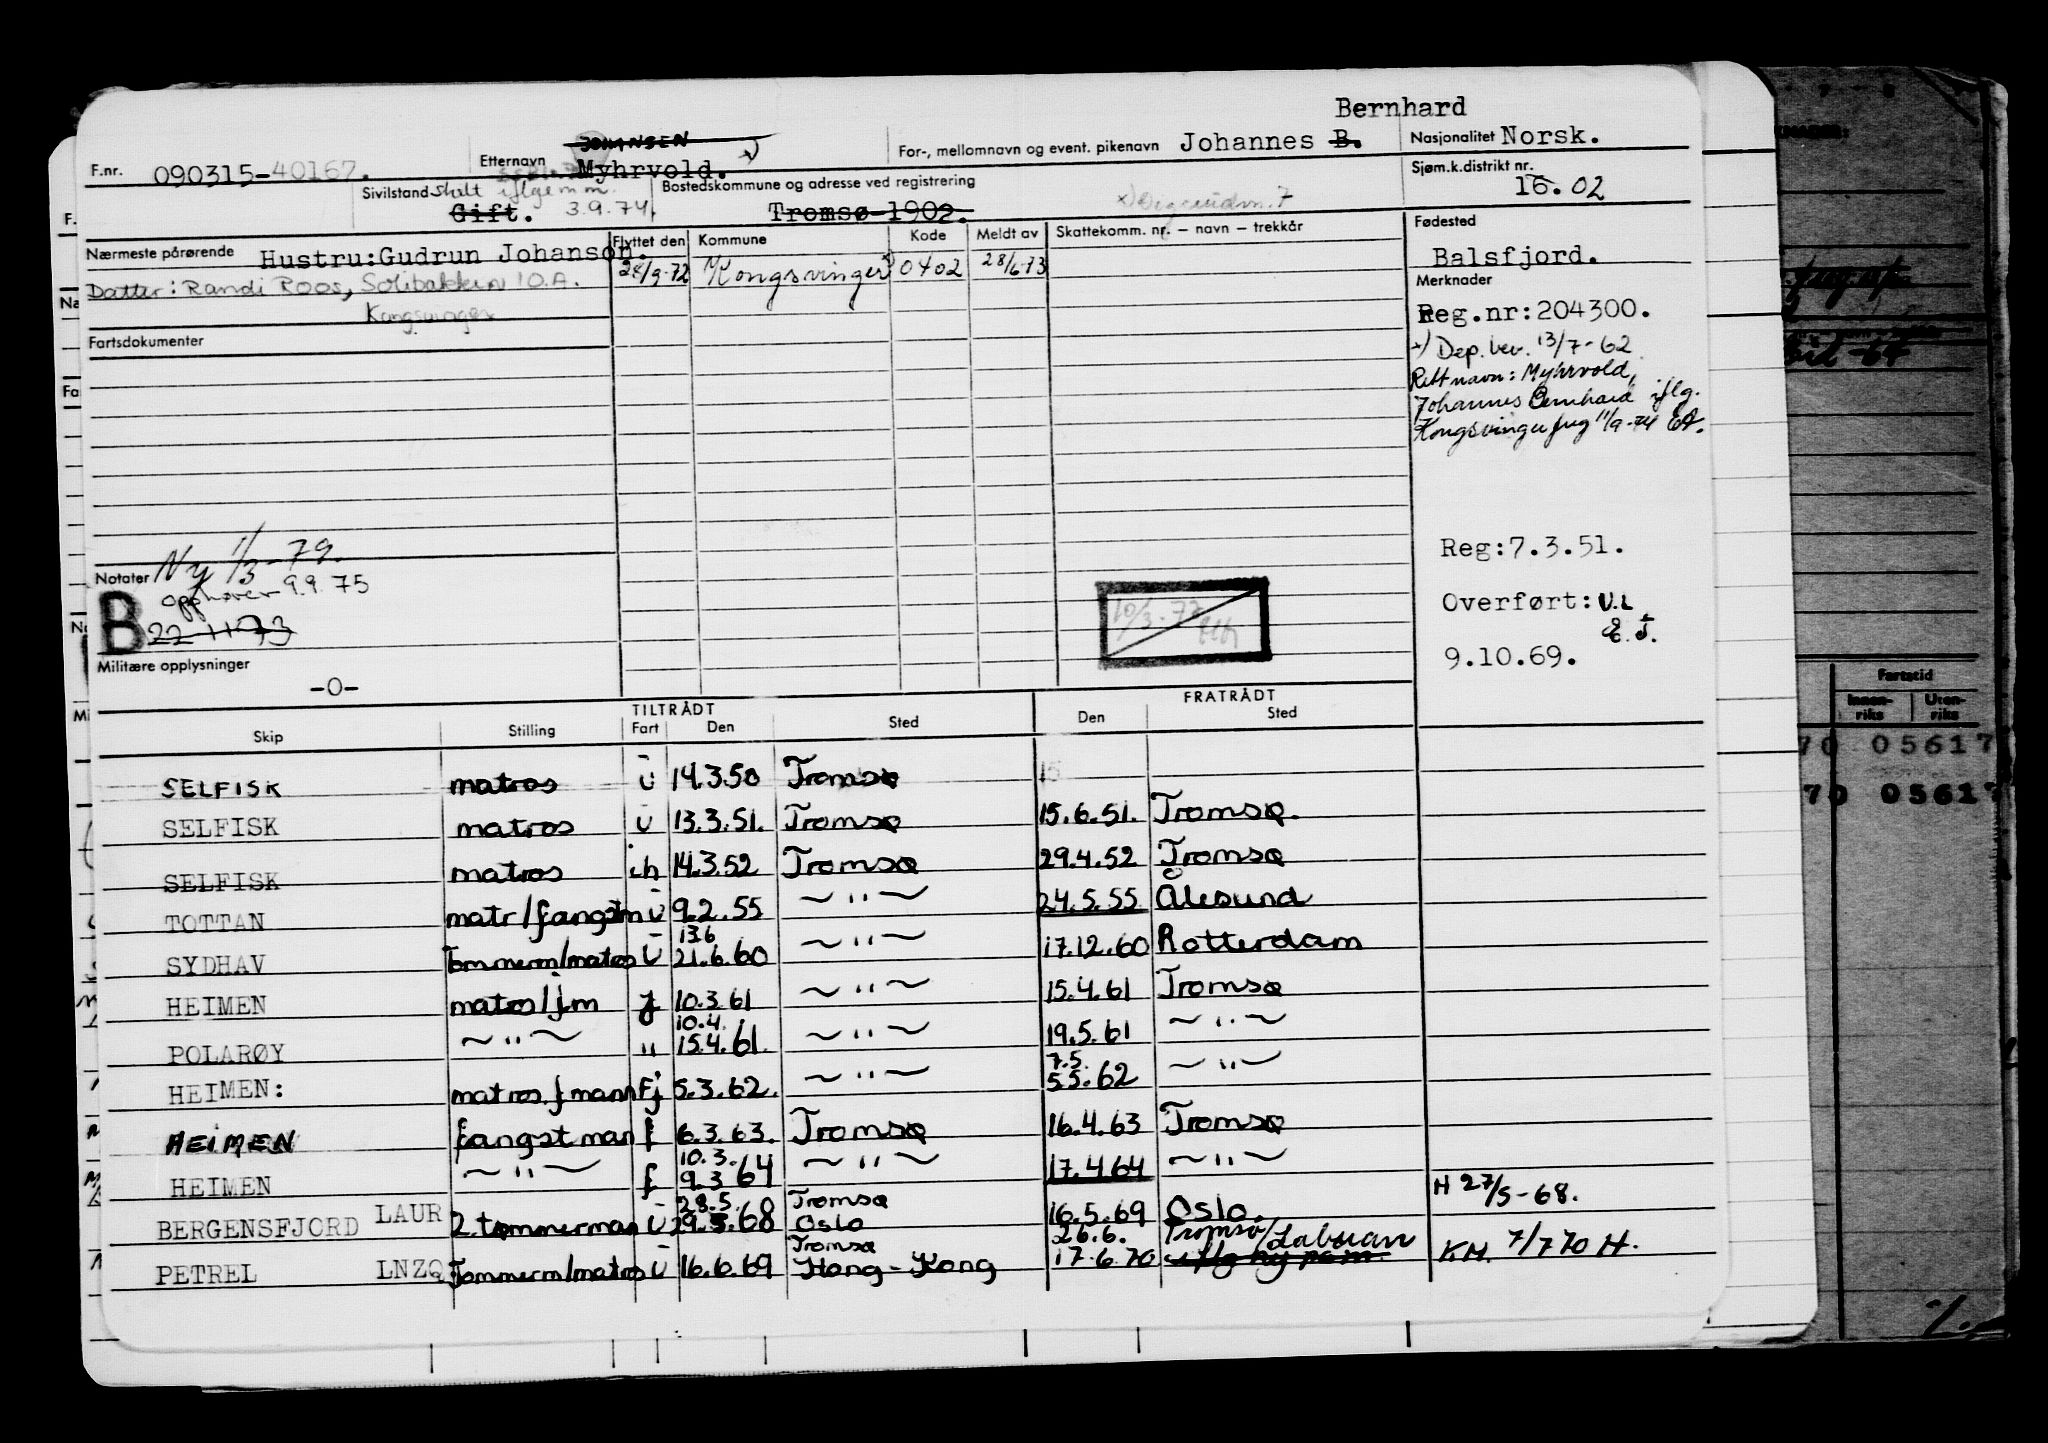 Bernhard
F.nr. 090315-40167. Etternavn JOHANSEN Myhrvold. x) For-, mellomnavn og event. pikenavn Johannes B. Nasjonalitet Norsk.
Sivilstand Skilt iflge m.m. 3.9.74 Gift. Bostedskommune og adresse ved registrering Tromsø-1902. Sjøm.k.distrikt nr. 16. 02
Nærmeste pårørende Hustru:Gudrun Johanson. Flyttet den Kommune Kode Meldt av Skattekomm. nr. – navn – trekkår Fødested
28/9-72 Kongsvinger 0402 28/6-73 Balsfjord.
Datter: Randi Roos, Solibakken 10.A.
Kongsvinger
Merknader
Reg.nr:204300.
Fartsdokumenter
x) Dep. bev. 13/7-62
Rett navn: Myhrvold,
Johannes Bernhard iflg.
Kongsvinger freg 11/9-74
Reg:7.3.51.
Notater Ny 1/3-79.
opphører 9.9.75
B 22-11-73
10/3-77
Overført: U.L
E.J.
9.10.69.
Militære opplysninger
-0-
TILTRÅDT FRATRÅDT
Skip Stilling Fart Den Sted Den Sted
SELFISK matros U 14.3.50 Tromsø 15
SELFISK matros U 13.3.51. Tromsø 15.6.51. Tromsø.
SELFISK matros ih 14.3.52 Tromsø 29.4.52 Tromsø
TOTTAN matr/fangstm U 9.2.55 ~"~ 24.5.55 Ålesund
SYDHAV Tømmerm/matros U 13.6 21.6.60 ~"~ 17.12.60 Rotterdam
HEIMEN matros/f.m f 10.3.61 ~"~ 15.4.61 Tromsø
POLARØY ~"~ " 10.4. 15.4.61. ~"~ 19.5.61 ~"~
HEIMEN: matros.f mann Fj 5.3.62. ~"~ 7.5. 5.5.62 ~"~
HEIMEN fangstman f 6.3.63. Tromsø 16.4.63 Tromsø
HEIMEN ~"~ f 10.3. 9.3.64 ~"~ 17.4.64 ~"~
BERGENSFJORD LAUR 2.tømmerman U 28.5. 29.5.68 Tromsø Oslo 16.5.69 Oslo. H 27/5-68.
PETREL LNZQ Tømmerm/matros U 16.6.69 Tromsø Hong-Kong 26.6. 17.6.70 Tromsø/Labuan iflg ny nom. KH. 7/7 70 H.
Fartstid
Innen-riks Uten-riks
70 05617
70 05617